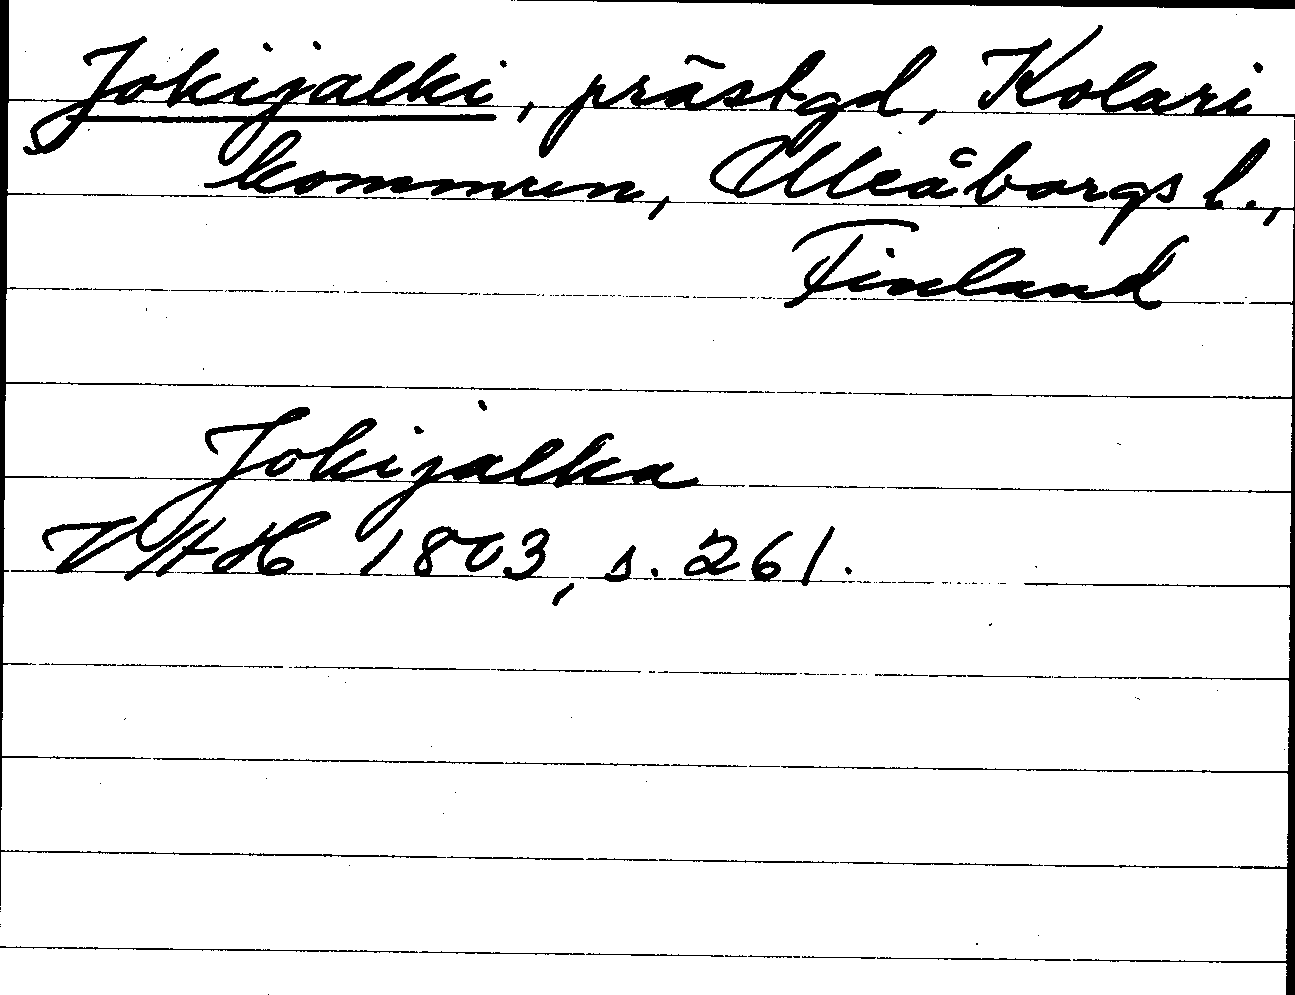 Jokijalki, prästgd, Kolari
kommun, Uleåborgs l.,
Finland
Jokijalka
VAH 1803, s. 261.